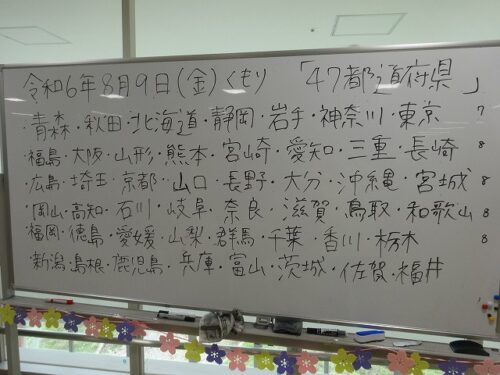 令和6年8月9日(金)くもり 「47都道府県」
・青森・秋田・北海道・静岡・岩手・神奈川・東京 7
福島・大阪・山形・熊本・宮崎・愛知・三重・長崎 8
広島・埼玉・京都・山口・長野・大分・沖縄・宮城 8
岡山・高知・石川・岐阜・奈良・滋賀・鳥取・和歌山 8
福岡・徳島・愛媛・山梨・群馬・千葉・香川・栃木 8
・新潟・島根・鹿児島・兵庫・富山・茨城・佐賀・福井